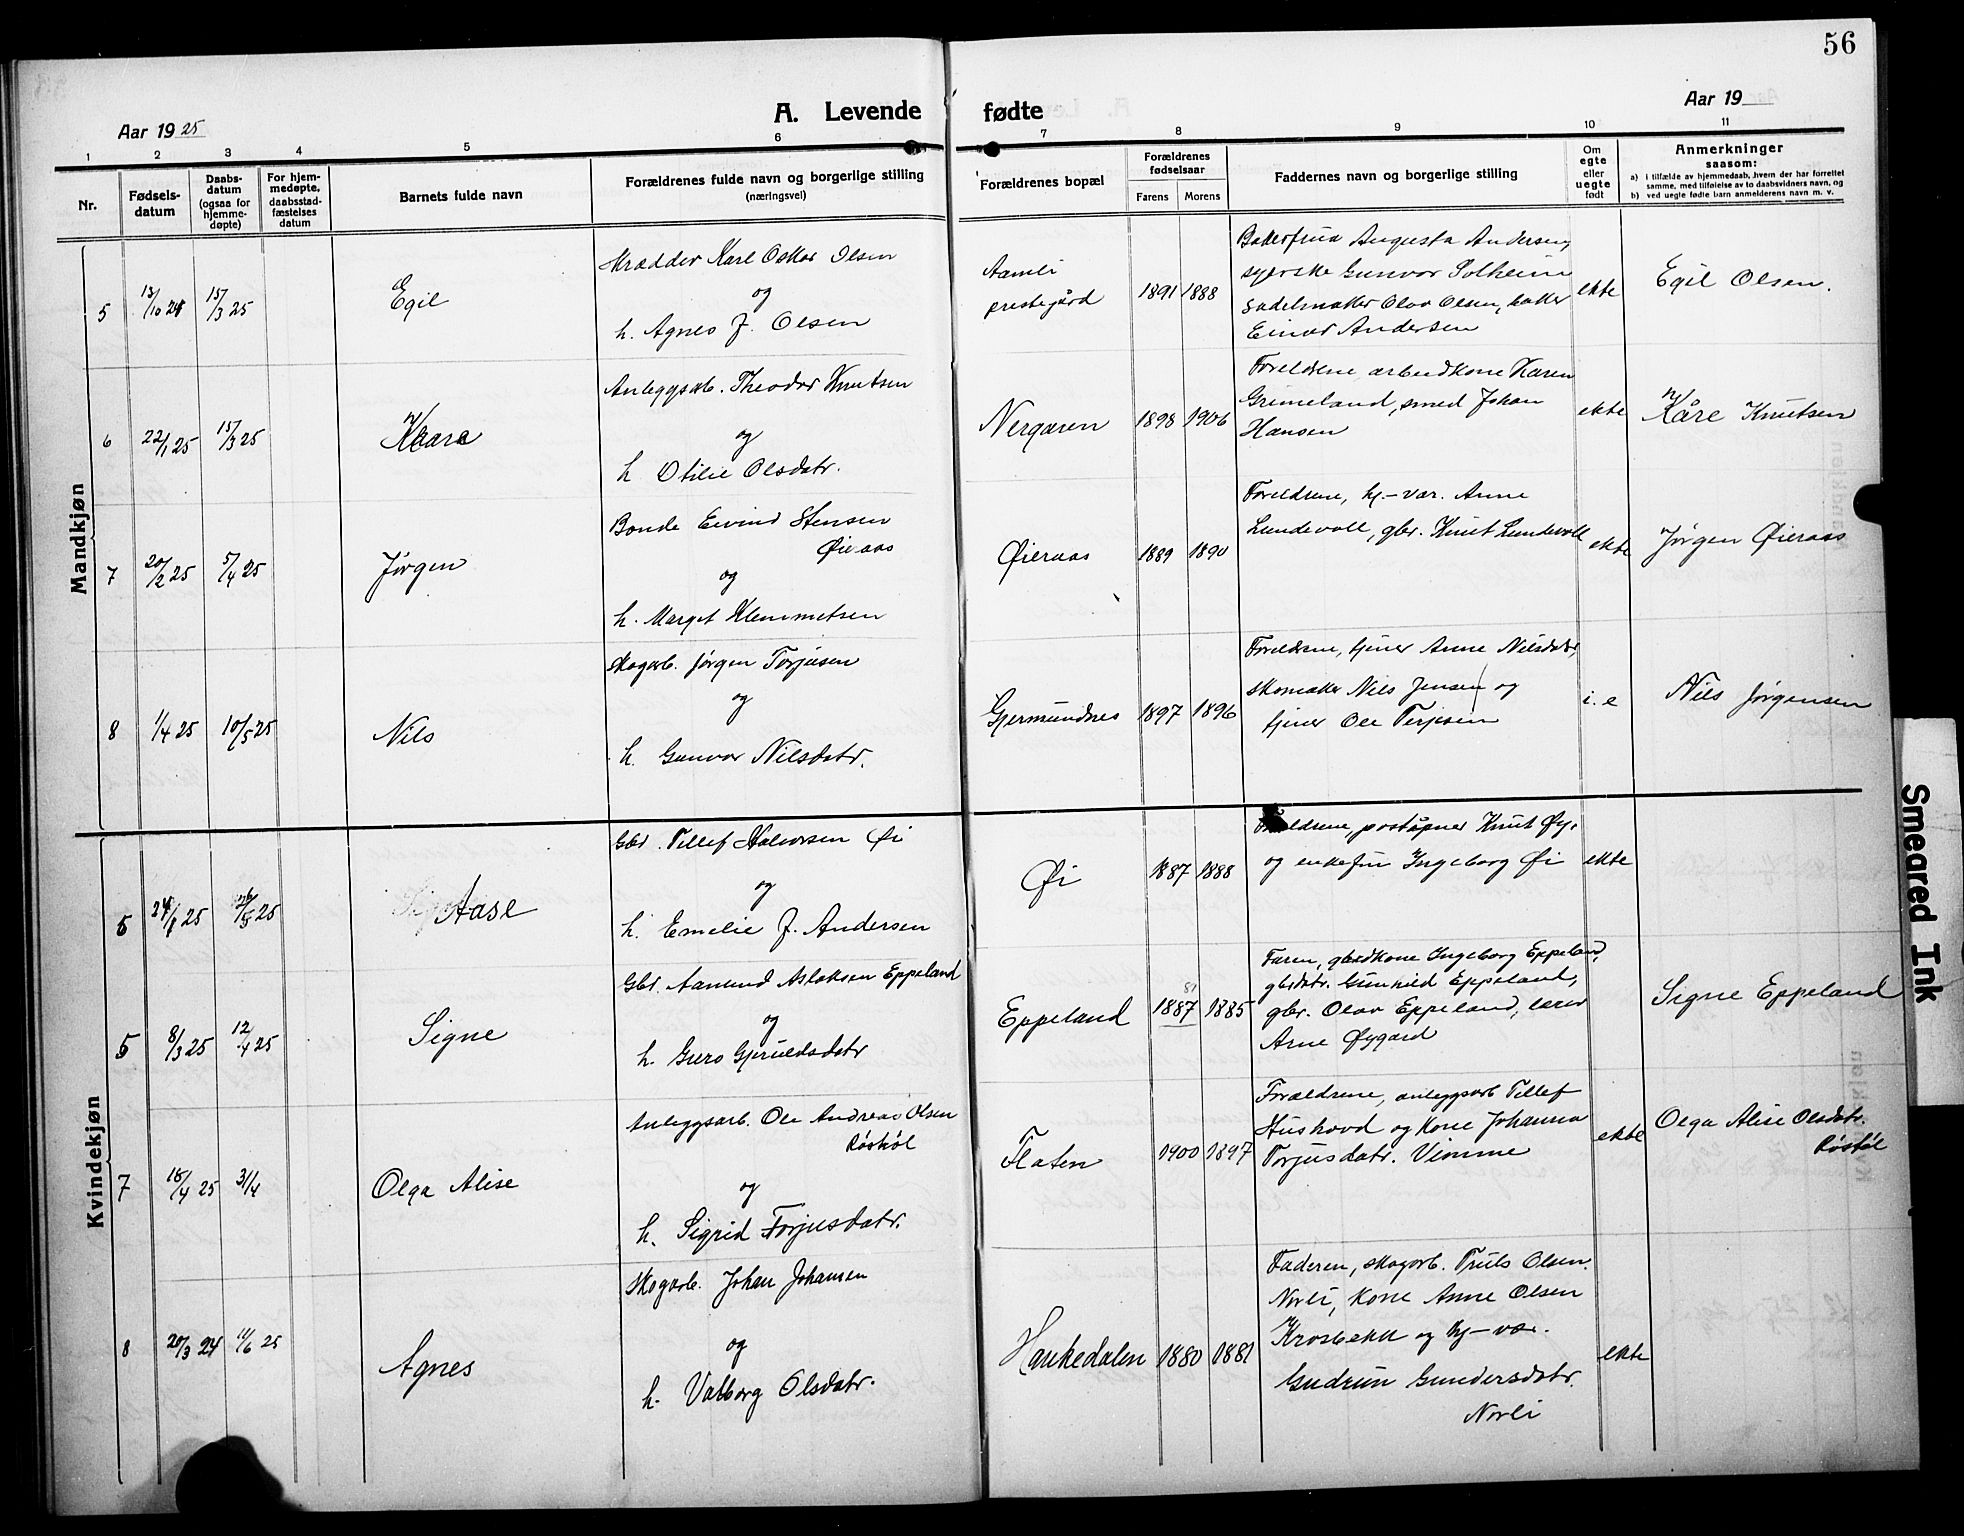 56
Aar 1925
A. Levende fødte
Aar 19
1 2 3 4 5 6 7 8 9 10 11
Nr.
Fødsels-
datum
Daabs-
datum
(ogsaa for
hjemme-
døpte)
For hjem-
medøpte,
daabsstad-
fæstelses
datum
Barnets fulde navn
Forældrenes fulde navn og borgerlige stilling
(næringsvei)
Forældrenes bopæl
Forældrenes
fødselsaar
Farens Morens
Faddernes navn og borgerlige stilling
Om
egte
eller
uegte
født
Anmerkninger
saasom:
a) i tilfælde av hjemmedaab, hvem der har forrettet
samme, med tilføielse av to daabsvidners navn, og
b) ved uegte fødte barn anmelderens navn m. v.
Mandkjøn
5
13/10 24
15/3 25
Egil
Skrædder Karl Oskar Olsen
og
h. Agnes J. Olsen
Aamli
prestegård
1891 1888
Bakerfrua Augusta Andersen,
syerske Gunvor Solheim
sadelmaker Olav Olsen, baker
Einar Andersen
ekte
Egil Olsen.
6
22/1 25
15/3 25
Kaare
Anleggsarb. Theodor Knutsen
og
h Otilie Olsdatr.
Nergaren
1898 1906
Foreldrene, arbeidkone Karen
Grimeland, smed Johan
Hansen
ekte
Kåre Knutsen
7
20/2 25
5/4 25
Jørgen
Bonde Eivind Stensen
Øieraas
og
h. Marget Klemmetsen
Øieraas
1889 1890
Foreldrene, hj-vær. Anne
Lundevoll, gbr. Knut Lundevoll
ekte
Jørgen Øieraas
8
1/4 25
10/5 25
Nils
Skogarb. Jørgen Torjusen
og
h. Gunvor Nilsdatr.
Gjermundnes
1897 1896
Foreldrene, tjener Anne Nilsdatr,
skomaker Nils Jensen og
tjener Ole Terjesen
i. e
Nils Jørgensen
Kvindekjøn
5
24/1 25
26/5 25
Aase
Gbr. Tellef Halvorsen Øi
og
h. Emelie J. Andersen
Øi
1887 1888
Foreldrene, poståpner Knut Øy,
og enkefru Ingeborg Øi
ekte
8/3 25
12/4 25
Signe
Gbr. Aamund Aslaksen Eppeland
og
h. Guro Gjeruldsdatr
Eppeland
81
1887 1885
Faren, gbrdkone Ingeborg Eppeland,
gbrdatr. Gunhild Eppeland,
gbr. Olav Eppeland, lærer
Arne Øygard
Signe Eppeland
7
18/4 25
31/4
Olga Alise
Anleggsarb. Ole Andreas Olsen
Røstøl
og
h. Sigrid Torjusdatr.
Flaten
1900 1897
Forældrene, anleggsarb Tellef
Hushovd og Kone Johanna
Torjusdatr. Vimme
ekte
Olga Alise Olsdatr.
Røstøl
8
20/3 24
11/6 25
Agnes
Skogarb. Johan Johansen
og
h. Valborg Olsdatr.
Haukedalen
1880 1881
Faderen, skogarb. Truls Olsen
Norli, Kone Anne Olsen
Krosbekk og hj-vær.
Gudrun Gundersdatr.
Norli
ekte
Smeared Ink